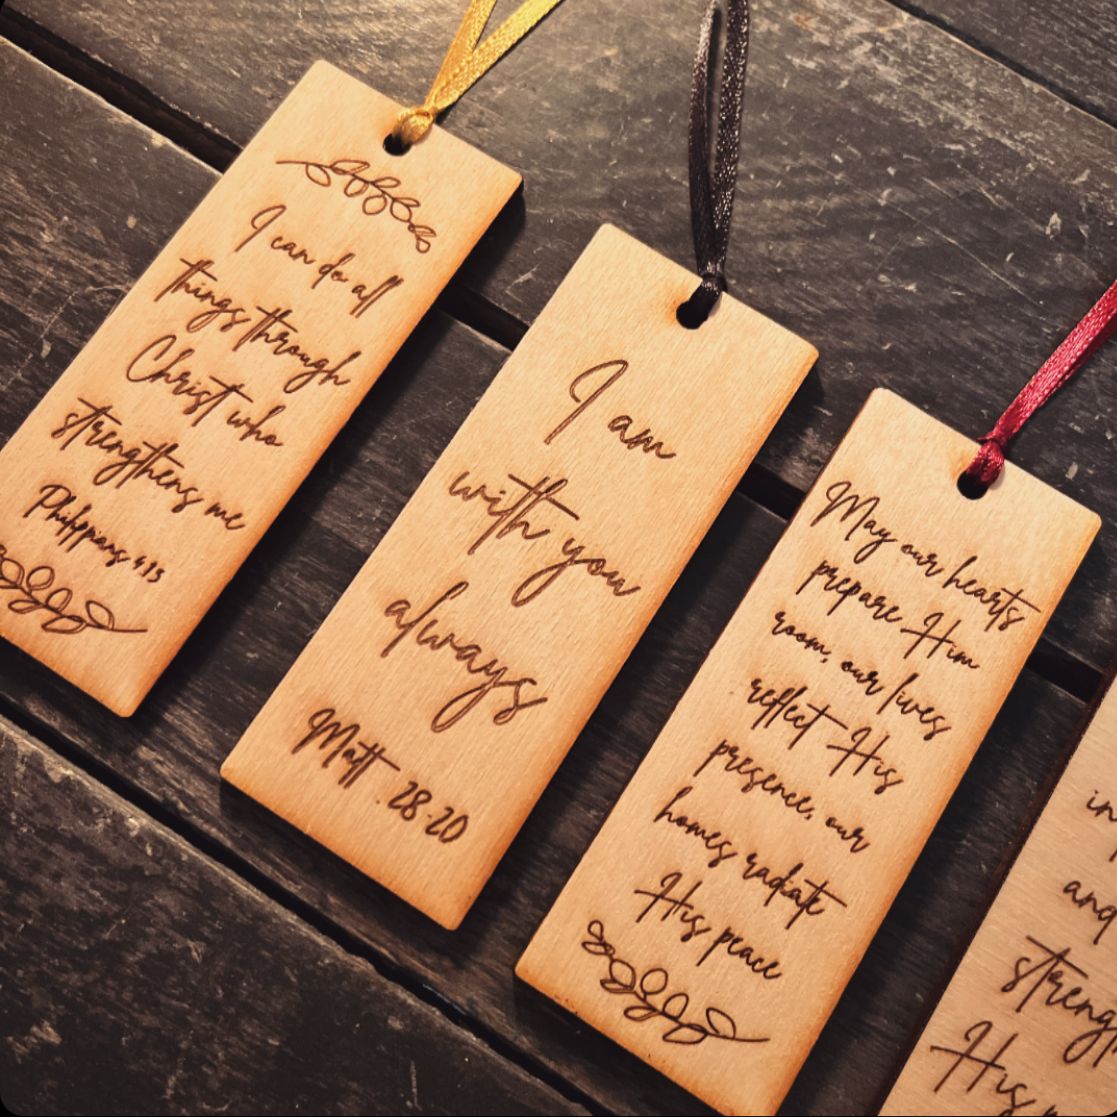 I can do all
things through
Christ who
strengthens me
Philippians 4:13
I am
with you
always
Matt. 28:20
May our hearts
prepare Him
room, our lives
reflect His
presence, our
homes radiate
His peace
in
and
streng
His